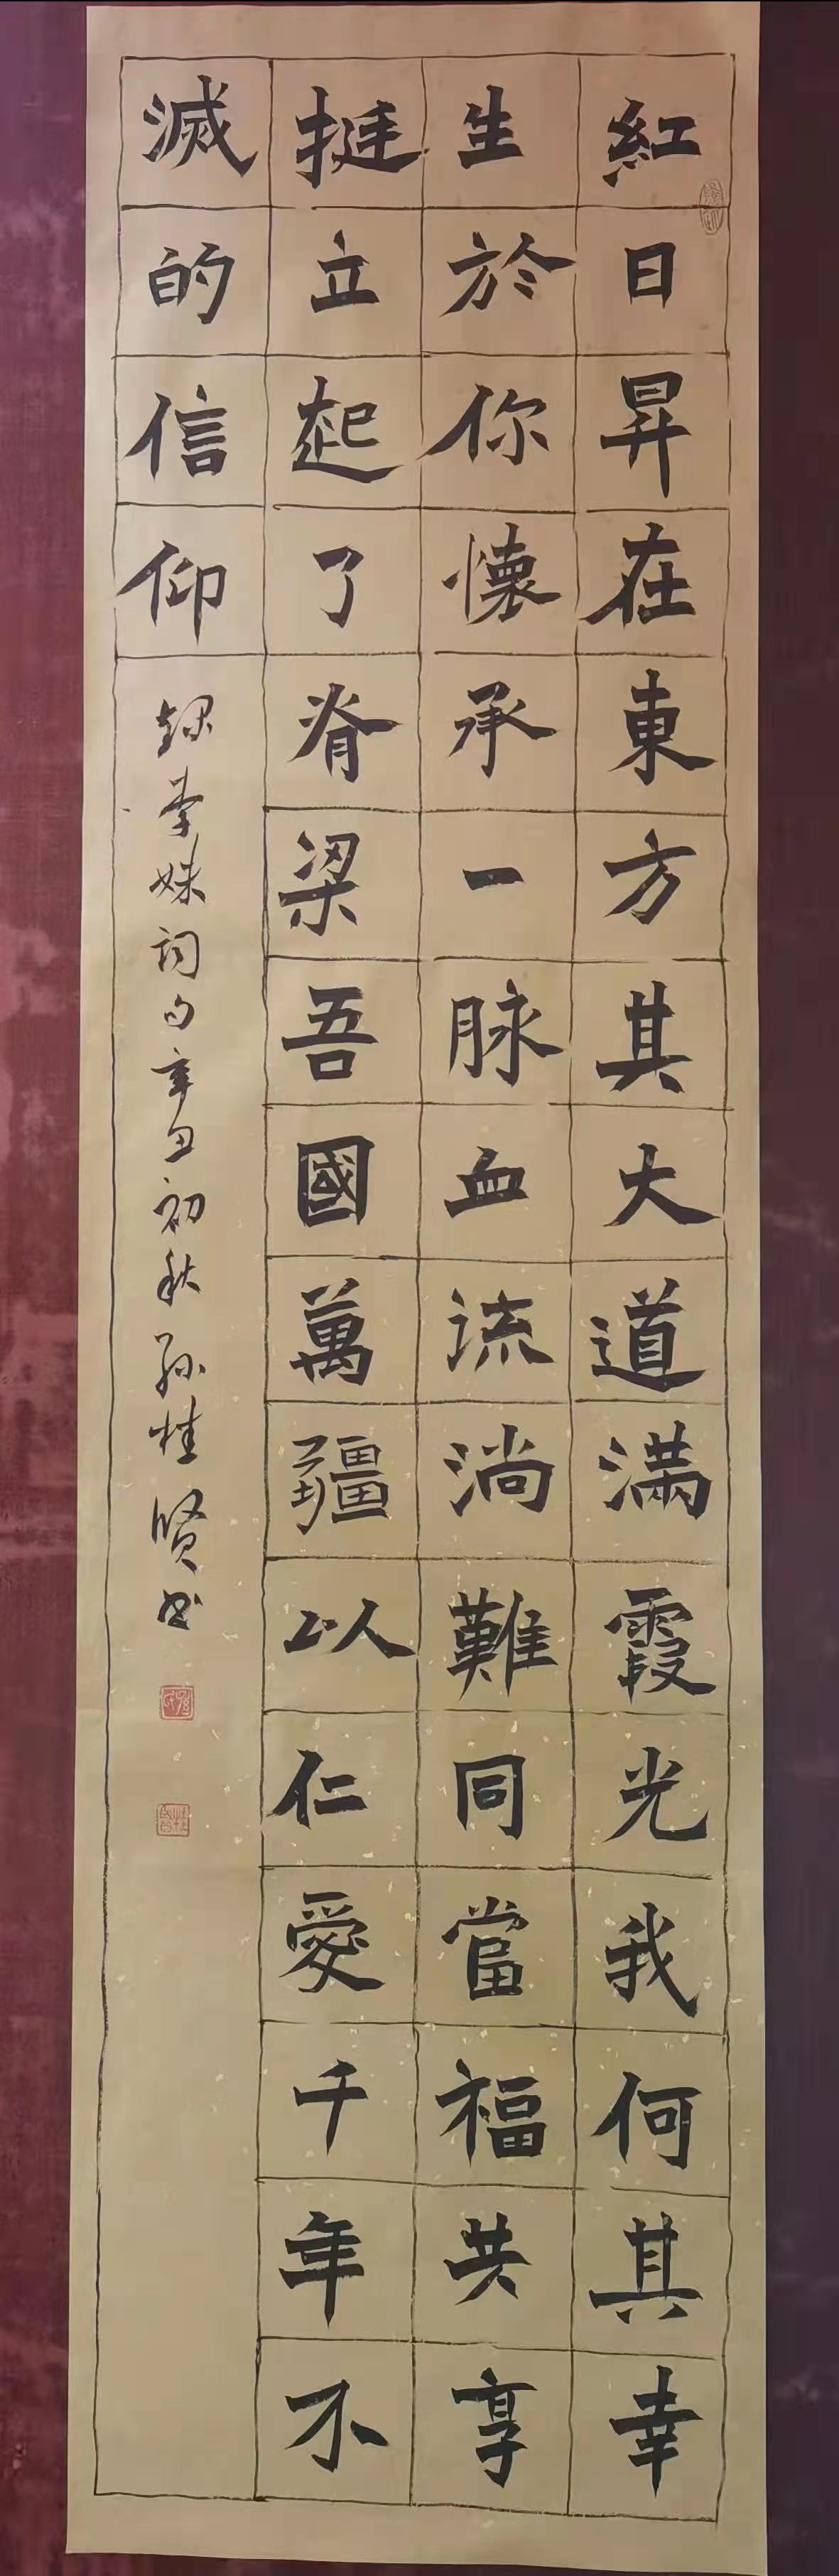 紅日昇在東方其大道滿霞光我何其幸
生於你懷承一脉血流淌難同當福共享
挺立起了脊梁吾國萬疆以仁愛千年不
滅的信仰
李姝詞句辛丑初秋孫桂賢书